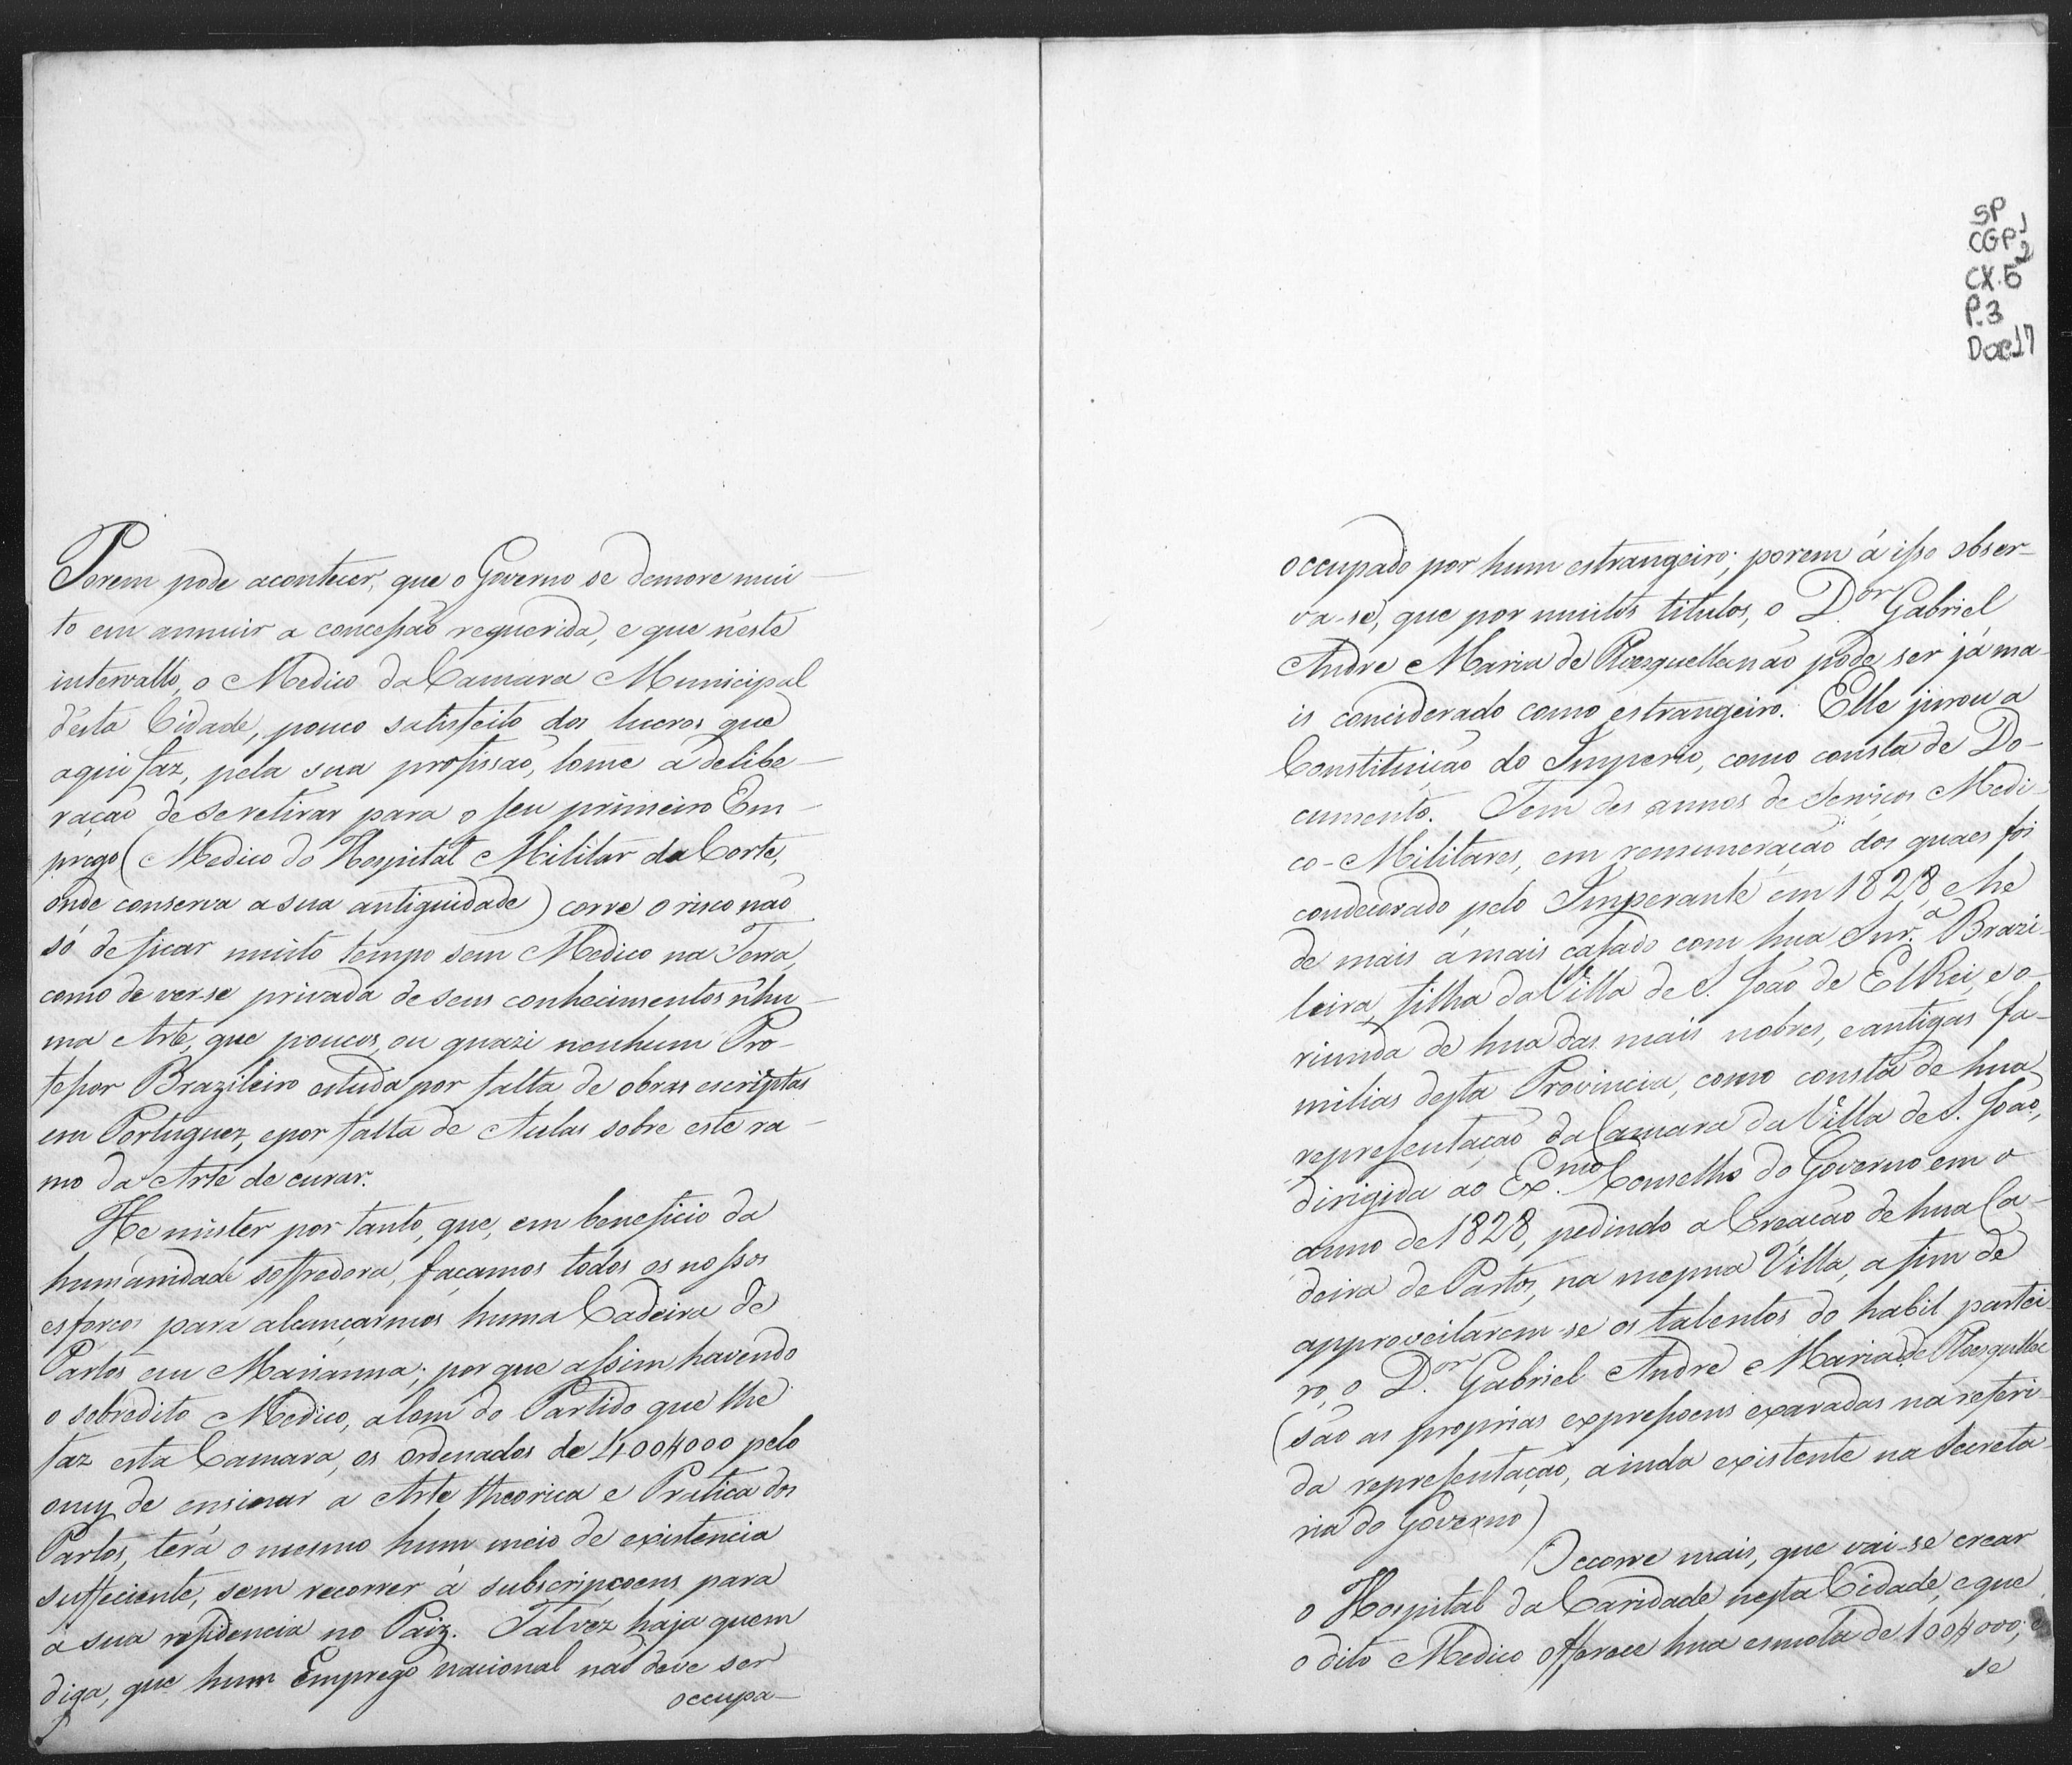 Porem pode acontecer, que o Governo se demore mui
to em annuir a concessão requerida, e que n'este
intervallo, o Medico da Camara Municipal
d'esta Cidade, pouco satisfeito dos lucros que
aqui faz, pela sua profissão, tome a delibe-
ração de se retirar para o seu primeiro Em-
prego (Medico do Hospital Militar da Corte,
onde conserva a sua antiguidade) corre o risco não
só de ficar muito tempo sem Medico na Terra,
como de ver-se privada de seus conhecimentos n'hu-
ma Arte, que poucos, ou quazi nenhum Pro-
fessor Brazileiro estuda por falta de obras escriptas
em Portuguez, e por falta de Aulas sobre este ra-
mo da Arte de curar.
He mister por tanto, que, em beneficio da
humanidade soffredora, façamos todos os nossos
esforços para alcançarmos huma Cadeira de
Partos em Marianna; por que assim havendo
o sobredito Medico, alem do Partido que lhe
faz esta Camara, os ordenados de 400$000 pelo
de ensinar a Arte theorica e Pratica dos
Partos, terá o mesmo hum meio de existencia
suffeciente, sem recorrer á subscripçoens para
a sua residencia no Paiz. Talvez haja quem
diga, que hum Emprego nacional não deve ser
occupa-
SP
CGP 1
2
CX. 5
P. 3
Doc 17
occupado por hum estrangeiro; porem á isso obser-
va-se, que por muitos titulos, o D.or Gabriel
Andre Maria de Ploesquellec não pode ser já ma-
is conciderado como estrangeiro. Elle jurou a
Constituição do Imperio, como consta de Do-
cumento. Tem des annos de Serviços Medi-
co-Militares, em remuneração dos quaes foi
condecorado pelo Imperante em 1828, e he
de mais á mais casado com hua Snr.a Brazi-
leira, filha da Villa de S. João de ElRei, e o-
riunda de hua das mais nobres, e antigas fa-
milias desta Provincia, como consta de hua
representação da Camara da Villa de S. João,
dirigida ao Ex.mo Conselho do Governo em o
anno de 1828, pedindo a Creação de hua Ca-
deira de Partos, na mesma Villa, a fim de
approveitarem-se os talentos do habil partei-
ro, o D.or Gabriel André Maria de Ploesquellec
(são as proprias expressoens exaradas na referi-
da representação, ainda existente na Secreta-
ria do Governo)
Occorre mais, que vai-se crear
o Hospital da Caridade nesta Cidade, e que
o dito Medico offerece hua esmola de 100$000; e
se